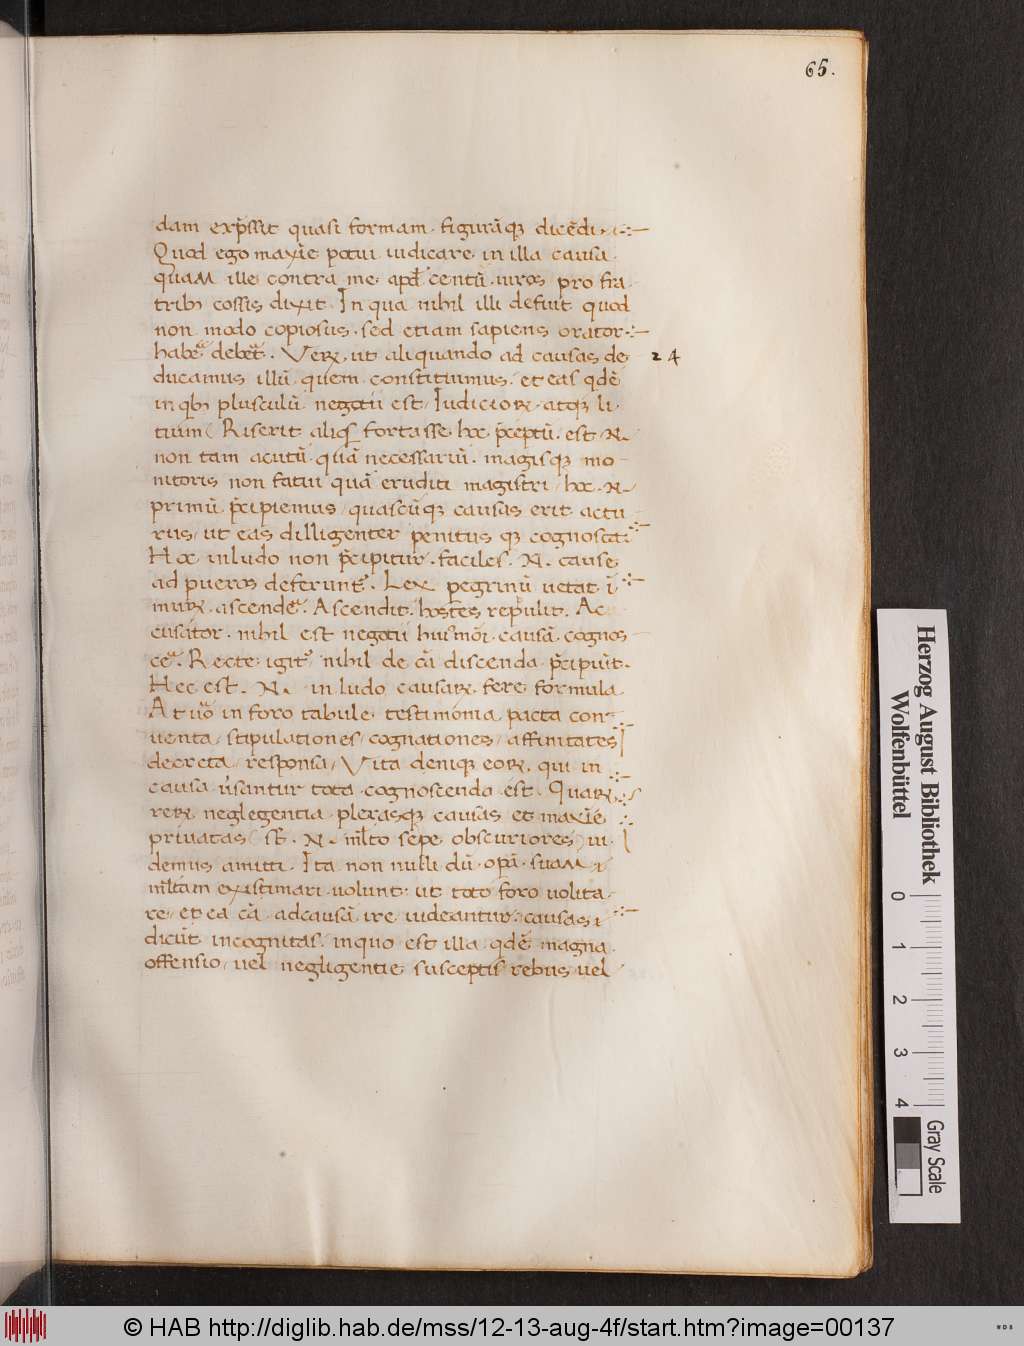 65.
dam exp̄ssit quasi formam. figurāq; dicēdi.
Quod ego maxīe potui iudicare in illa causa.
quaM ille contra me apd' centū. uiros pro fra
trib; cossis dixit. In qua nihil illi defuit quod
non modo copiosus. sed etiam sapiens orator.
habē debet. Verꝝ, ut aliquando ad causas de
24
ducamus illū quem constituimus. et eas qdē
in qb; plusculū negotii est. Iudicioꝝ atq; li
tium. Riserit aliqs fortasse hoc p̄ceptū. est .N.
non tam acutū quā necessariū. magisq; mo
nitoris non fatui quā eruditi magistri. hoc .N.
primū p̄cipiemus, quascūq; causas erit actu
rus, ut eas dilligenter penitus q; cognoscat.
Hoc in ludo non p̄cipitur. faciles .N. cause
ad pueros deferunt'. Lex pegrinū uetat ī
muꝝ ascendē. Ascendit. hostes repulit. Ac
cusator. nihil est negotii huiusmōi. causā cognos
cē. Recte igit' nihil de cā discenda p̄cipiūt.
Hec est .N. in ludo causaꝝ fere formula
At uō in foro tabule testimonia pacta con
uenta, stipulationes, cognationes, affinitates
decreta, responsa, Vita deniq; eoꝝ, qui in
causa ūsantur tota cognoscenda est. Quaꝝ
reꝝ neglegentia plerasq; causas et maxīe
priuatas (st̄ .N. mlto sepe obscuriores) ui
demus amitti. Ita non nulli dū opā suaM
mltam existimari uolunt. ut toto foro uolita
re, et ea cā ad causā ire uideantur. causas
dicūt incognitas. in quo est illa qdē magna
offensio, uel negligentie susceptis rebus uel
Herzog August Bibliothek
Wolfenbüttel
0 1 2 3 4
Gray Scale
© HAB http://diglib.hab.de/mss/12-13-aug-4f/start.htm?image=00137